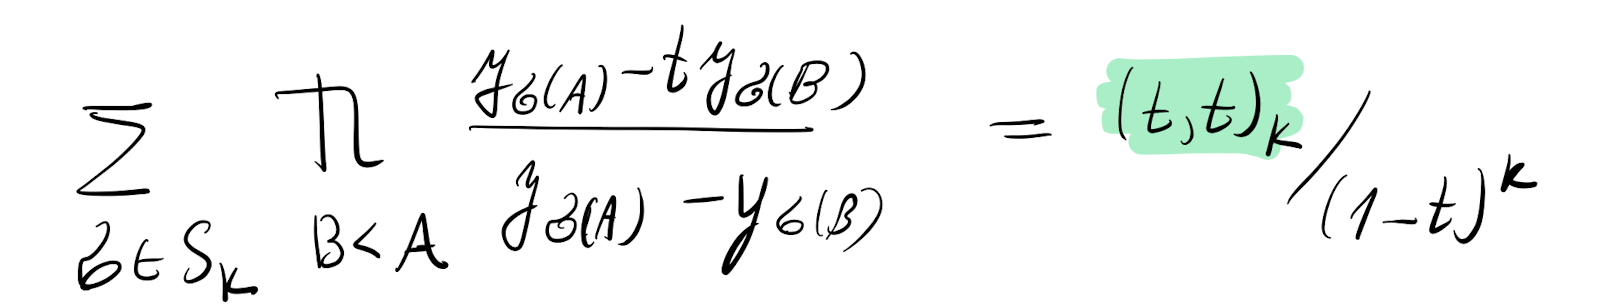 ∑_{σ∈S_k} ∏_{B<A} (y_{σ(A)} − t y_{σ(B)}) / (y_{σ(A)} − y_{σ(B)}) = (t,t)_k / (1−t)^k